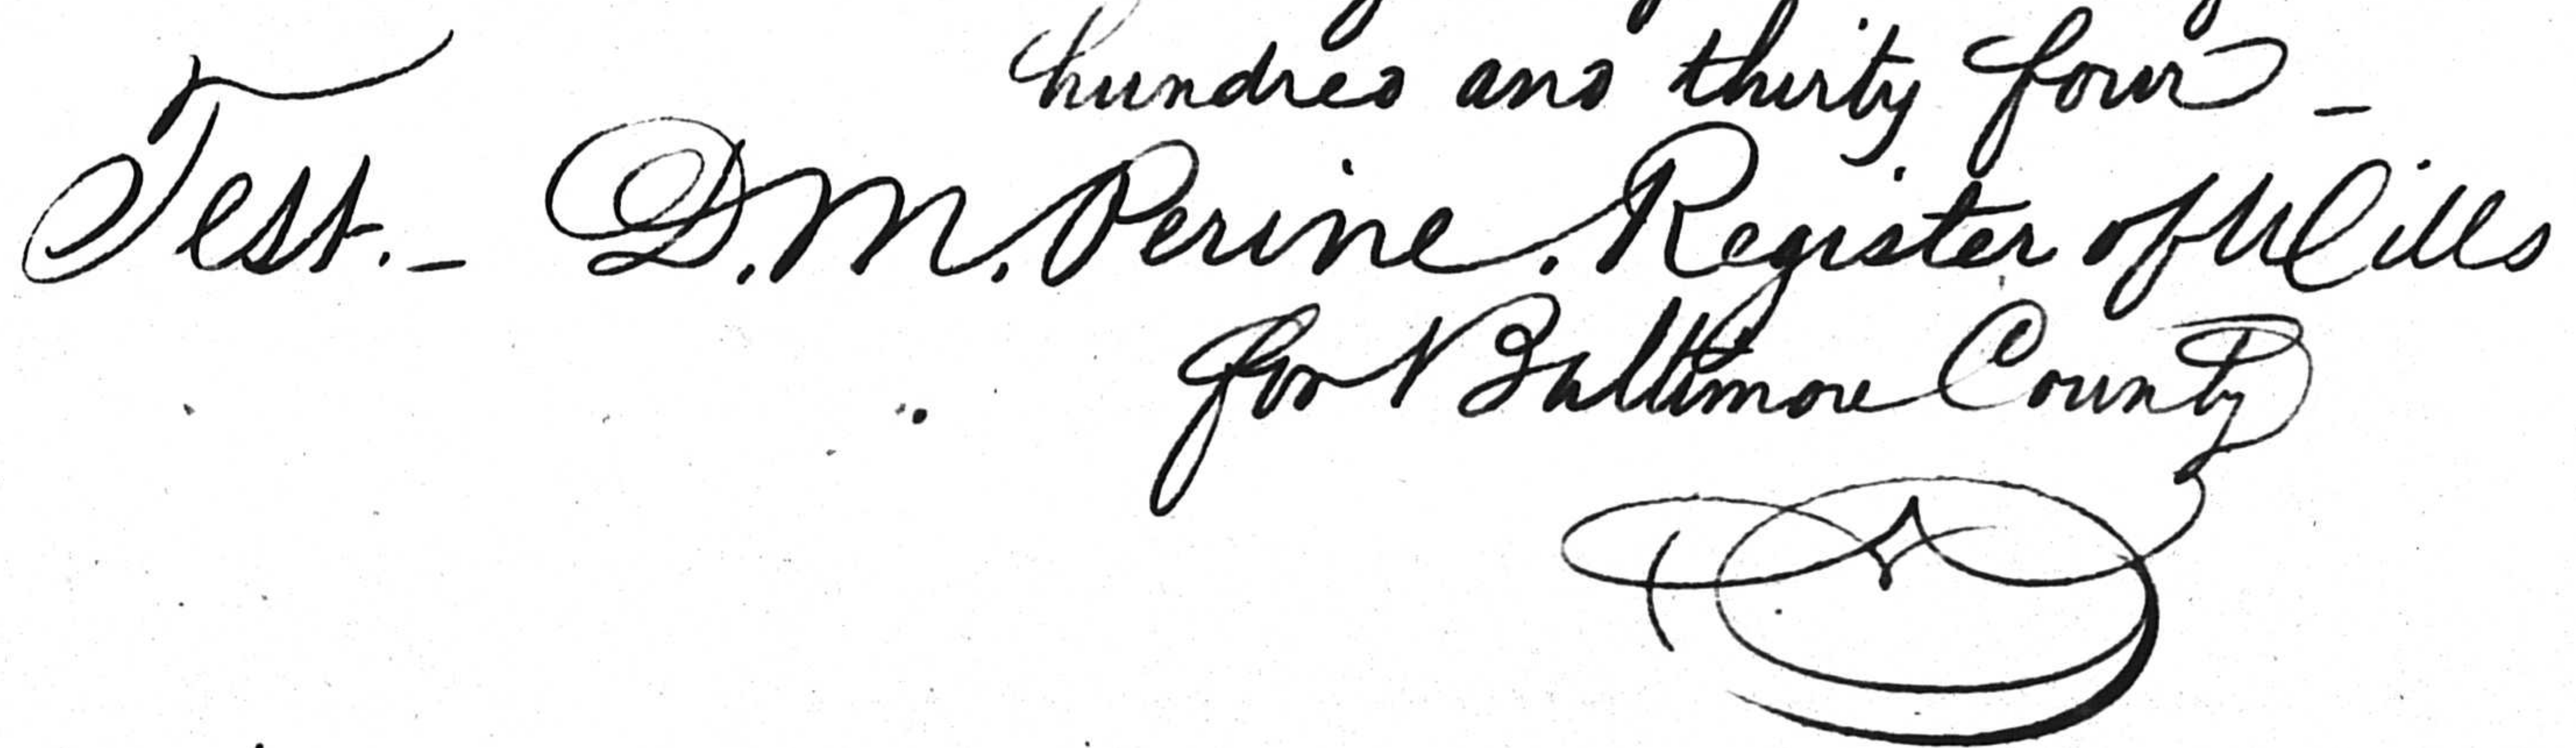 hundred and thirty four –
Test. – D. M. Perine. Register of Wills
for Baltimore County